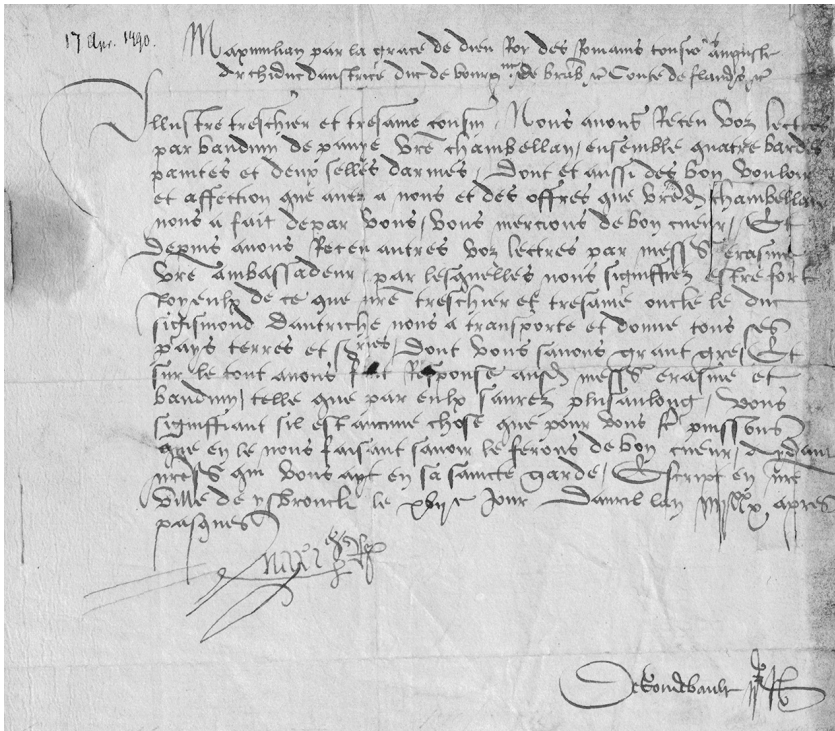 17 Apr. 1490.
Maximilian par la grace de dieu Roy des Romains tousio's auguste
Archiduc daustrice duc de bourgne de brabt &c Conte de flandres &c
Illustre treschier et tresame cousin, Nous auons Receu voz lectres
par bauduin de pauye vre chambellan, ensemble quatre bardes
paintes et deux selles darmes, Dont et aussi des bon vouloir
et affection que auez a nous et des offres que vred chambellan
nous a fait depar vous, vous mercions de bon cueur, Et
depuis auons Receu autres voz lectres par mess erasme
vre ambassadeur par lesquelles nous signiffiez estre fort
Joyeulx de ce que nre treschier et tresame oncle le duc
sigismond daustriche nous a transporte et donne tous ses
pays terres et sries, Dont vous sauons grant gre, Et
sur le tout auons fait Response ausd mess erasme et
bauduin, telle que par eulx saurez plusaulong, Vous
signiffiant sil est aucune chose que pour vous fe puissons
que en le nous faisant sauoir le ferons de bon cueur, aydant
nres qui vous ayt en sa saincte garde, Escript en nre
ville de ysbrouck le xvije Jour Dauril lan iiijxx x, apres
pasques